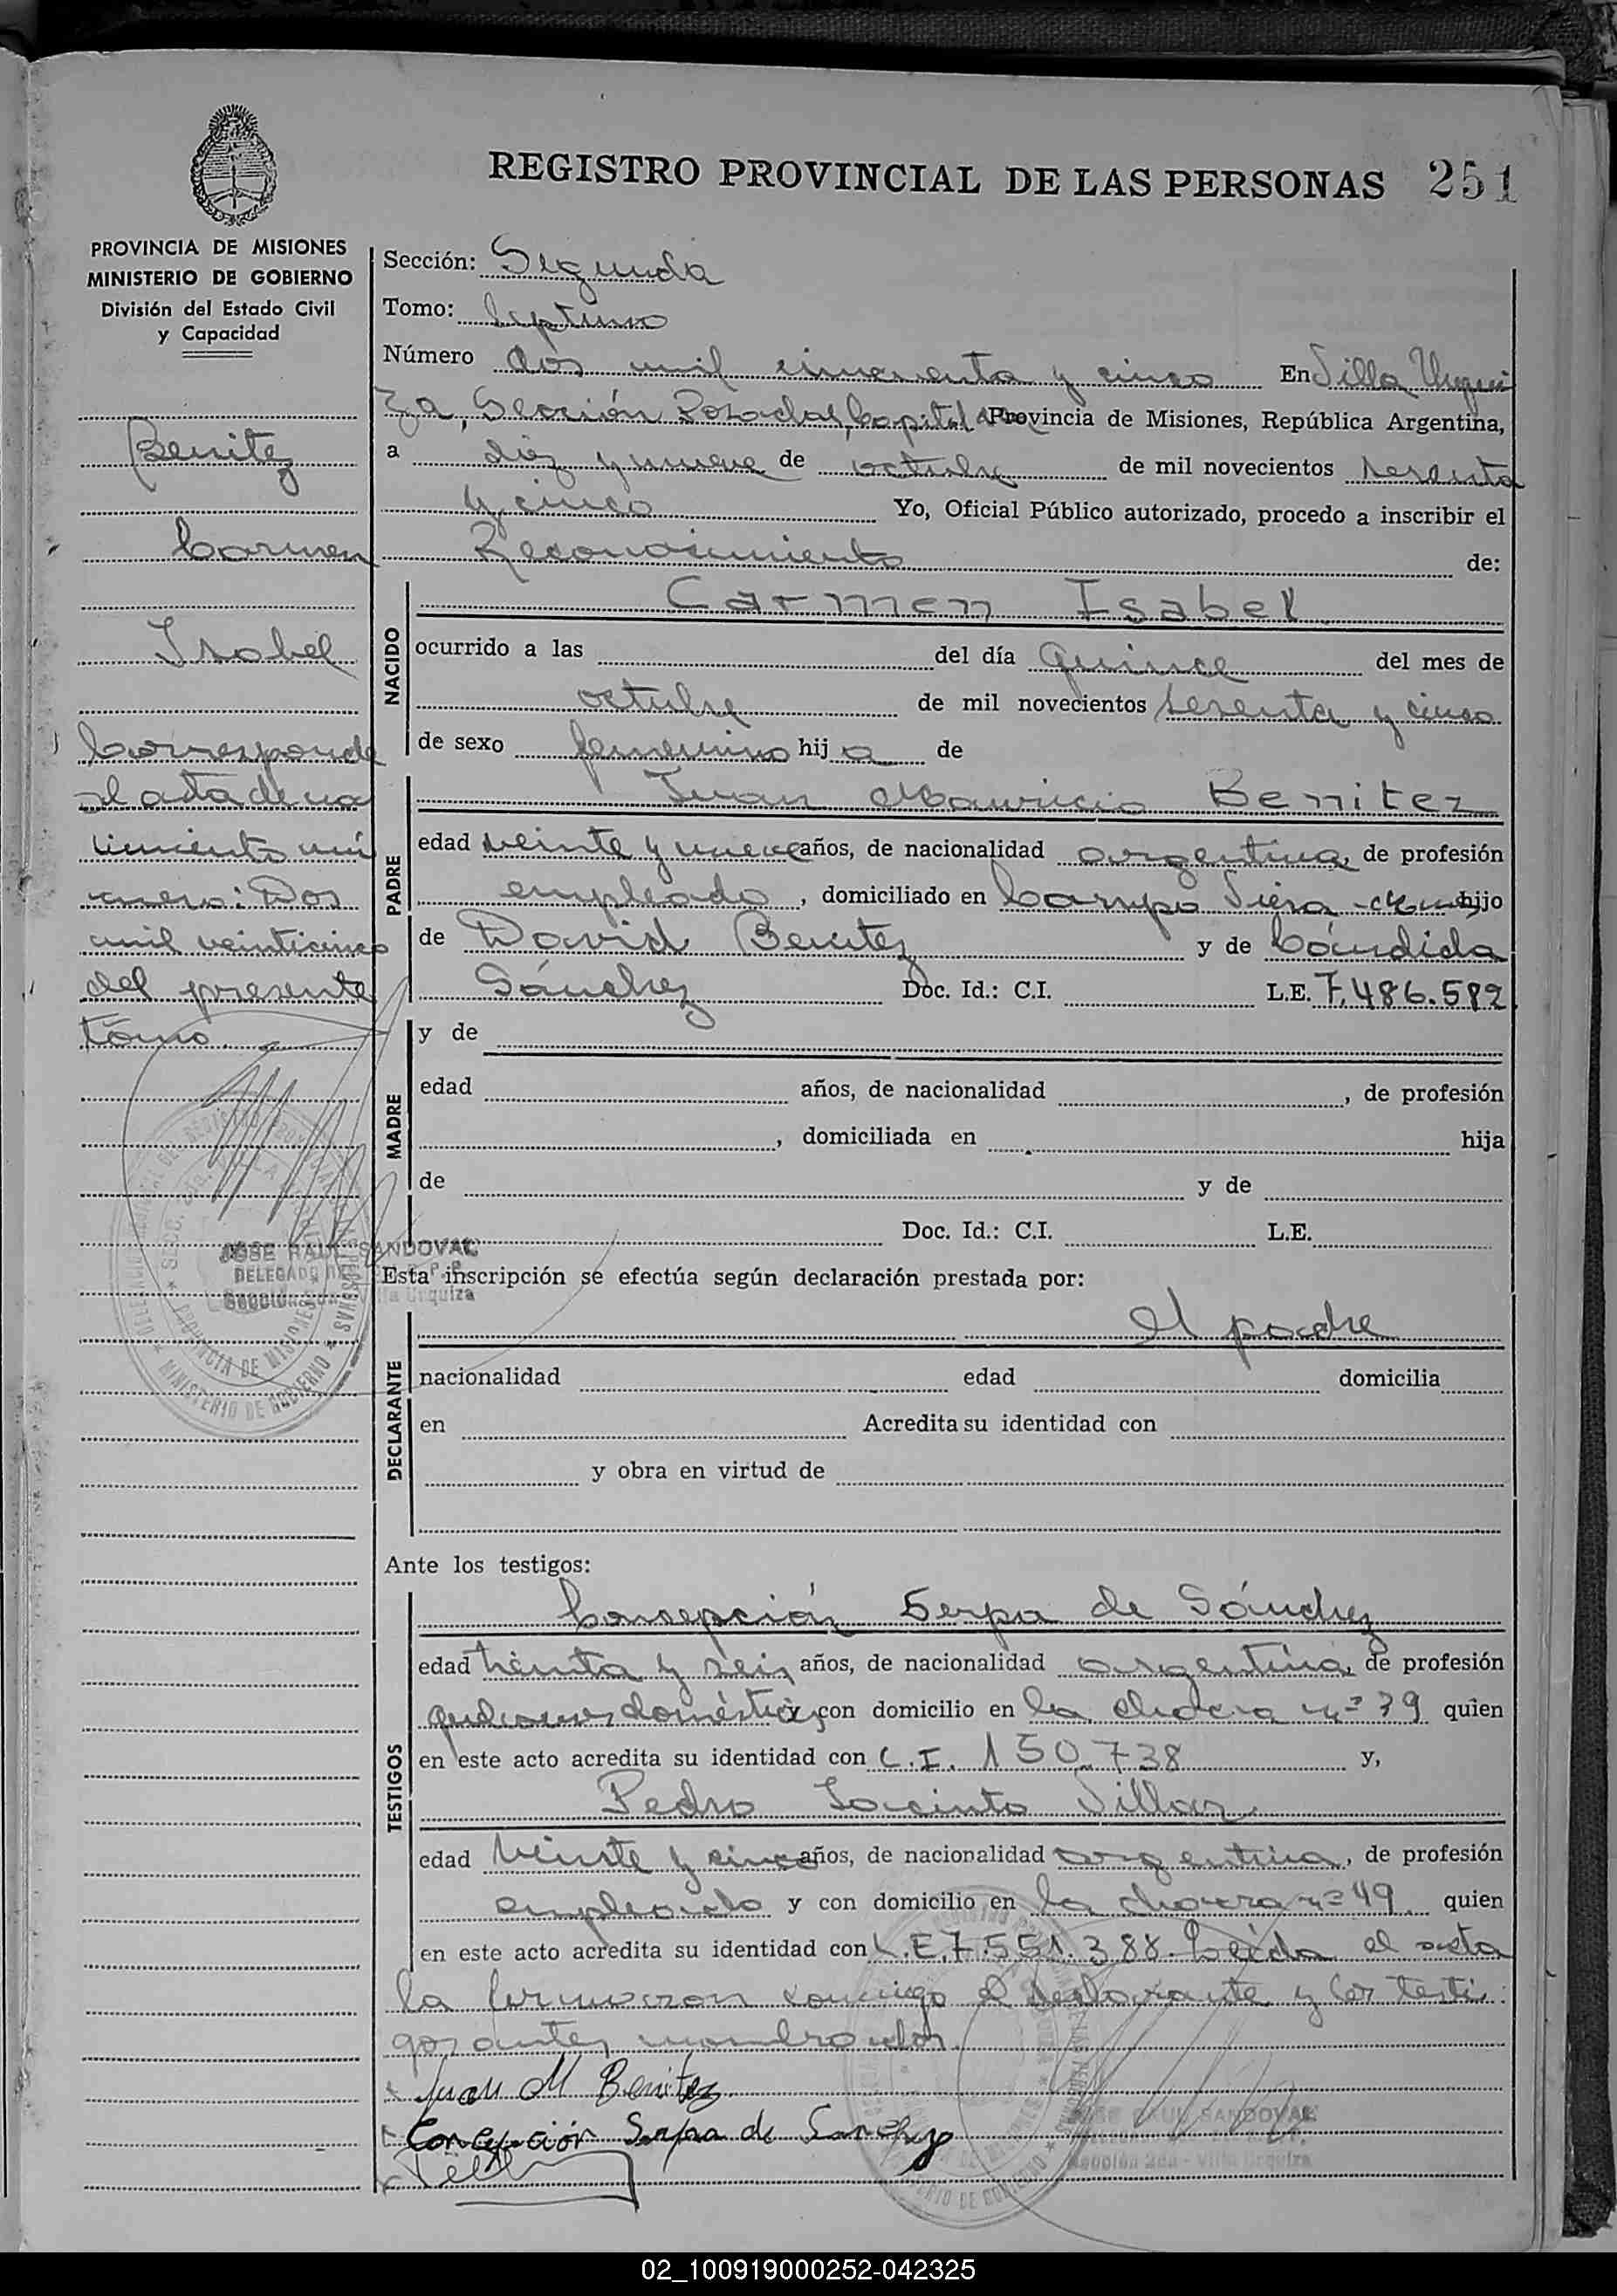 REGISTRO PROVINCIAL DE LAS PERSONAS 251
PROVINCIA DE MISIONES
MINISTERIO DE GOBIERNO
División del Estado Civil
y Capacidad
Benitez
Carmen
Isabel
Corresponde
al acta de na
cimiento nú
mero: Dos
mil veinticinco
del presente
tomo.
JOSE RAUL SANDOVAL
DELEGADO
Sección 2da - Villa Urquiza
Sección: Segunda
Tomo: Septimo
Número dos mil cincuenta y cinco En Villa Urqui
za, Sección Posadas, Capital Provincia de Misiones, República Argentina,
a diez y nueve de octubre de mil novecientos sesenta
y cinco Yo, Oficial Público autorizado, procedo a inscribir el
Reconocimiento de:
NACIDO
Carmen Isabel
ocurrido a las del día quince del mes de
octubre de mil novecientos sesenta y cinco
de sexo femenino hij a de
PADRE
Juan Mauricio Benitez
edad veinte y nueve años, de nacionalidad argentina, de profesión
empleado, domiciliado en Campo Viera hijo
de David Benitez y de Cándida
Sánchez Doc. Id.: C.I. L.E. 7.486.582
MADRE
y de
edad años, de nacionalidad , de profesión
, domiciliada en hija
de y de
Doc. Id.: C.I. L.E.
Esta inscripción se efectúa según declaración prestada por:
DECLARANTE
el padre
nacionalidad edad domicilia
en Acredita su identidad con
y obra en virtud de
Ante los testigos:
TESTIGOS
Concepción Serpa de Sánchez
edad treinta y seis años, de nacionalidad argentina, de profesión
quehaceres domésticos, con domicilio en la chacra nº 39 quien
en este acto acredita su identidad con C.I. 150.738 y,
Pedro Jacinto Villar
edad veinte y cinco años, de nacionalidad argentina, de profesión
empleado y con domicilio en la chacra nº 49 quien
en este acto acredita su identidad con L.E. 7.551.388. Leída el acta
la firmaron conmigo el declarante y los testi
gos antes nombrados.
Juan M Benitez
Concepción Serpa de Sanchez
JOSE RAUL SANDOVAL
Sección 2da - Villa Urquiza
02_100919000252-042325